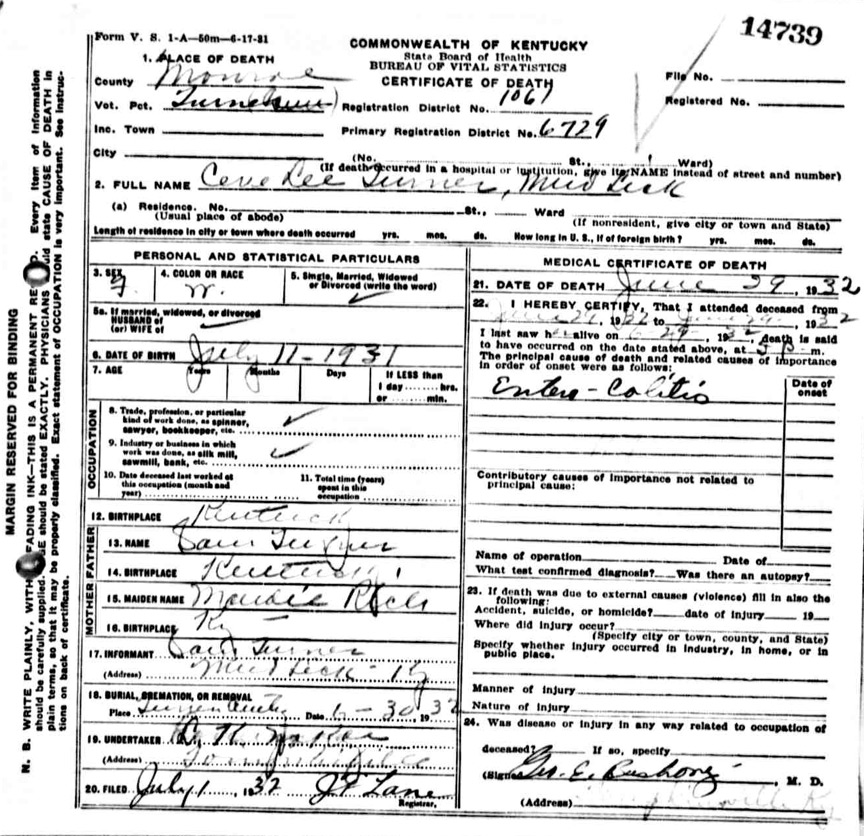 14739
Form V. S. 1-A—50m—6-17-31
COMMONWEALTH OF KENTUCKY
State Board of Health
BUREAU OF VITAL STATISTICS
CERTIFICATE OF DEATH
1. PLACE OF DEATH
County Monroe
Vot. Pct.
Registration District No. 1061
Inc. Town
Primary Registration District No. 6729
City
(No. St., Ward)
(If death occurred in a hospital or institution, give its NAME instead of street and number)
File No.
Registered No.
2. FULL NAME Lee Turner, Mud Lick
(a) Residence. No. St., Ward
(Usual place of abode)
(If nonresident, give city or town and State)
Length of residence in city or town where death occurred yrs. mos. ds. How long in U. S., if of foreign birth? yrs. mos. ds.
PERSONAL AND STATISTICAL PARTICULARS
3. SEX
4. COLOR OR RACE
W.
5. Single, Married, Widowed
or Divorced (write the word)
5a. If married, widowed, or divorced
HUSBAND of
(or) WIFE of
6. DATE OF BIRTH July 11-1931
7. AGE Years Months Days
If LESS than
1 day hrs.
or min.
OCCUPATION
8. Trade, profession, or particular
kind of work done, as spinner,
sawyer, bookkeeper, etc.
9. Industry or business in which
work was done, as silk mill,
sawmill, bank, etc.
10. Date deceased last worked at
this occupation (month and
year)
11. Total time (years)
spent in this
occupation
12. BIRTHPLACE
FATHER
13. NAME Turner
14. BIRTHPLACE
MOTHER
15. MAIDEN NAME
16. BIRTHPLACE Ky
17. INFORMANT Turner
(Address) Mud Lick Ky
18. BURIAL, CREMATION, OR REMOVAL
Place Date 6-30, 1932
19. UNDERTAKER
(Address)
20. FILED July 1, 1932 Lane
Registrar.
MEDICAL CERTIFICATE OF DEATH
21. DATE OF DEATH June 29, 1932
22. I HEREBY CERTIFY, That I attended deceased from
to , 1932
I last saw her alive on 6-29-, 1932, death is said
to have occurred on the date stated above, at 5 P. m.
The principal cause of death and related causes of importance
in order of onset were as follows:
Date of
onset
Entero-Colitis
Contributory causes of importance not related to
principal cause:
Name of operation Date of
What test confirmed diagnosis? Was there an autopsy?
23. If death was due to external causes (violence) fill in also the
following:
Accident, suicide, or homicide? date of injury 19
Where did injury occur?
(Specify city or town, county, and State)
Specify whether injury occurred in industry, in home, or in
public place.
Manner of injury
Nature of injury
24. Was disease or injury in any way related to occupation of
deceased? If so, specify
(Signed) Geo. E. Bushong, M. D.
(Address)
MARGIN RESERVED FOR BINDING
N. B. WRITE PLAINLY, WITH FADING INK—THIS IS A PERMANENT Every item of information
should be carefully supplied. should be stated EXACTLY. PHYSICIANS state CAUSE OF DEATH in
plain terms, so that it may be properly classified. Exact statement of OCCUPATION is very important. See instruc-
tions on back of certificate.